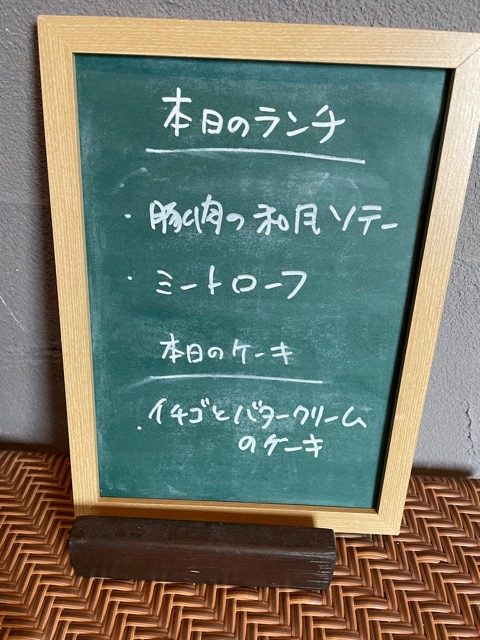 本日のランチ
・豚肉の和風ソテー
・ミートローフ
本日のケーキ
・イチゴとバタークリーム
のケーキ